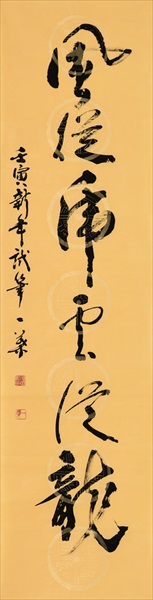 風從虎雲從龍
壬寅新年試筆一葉